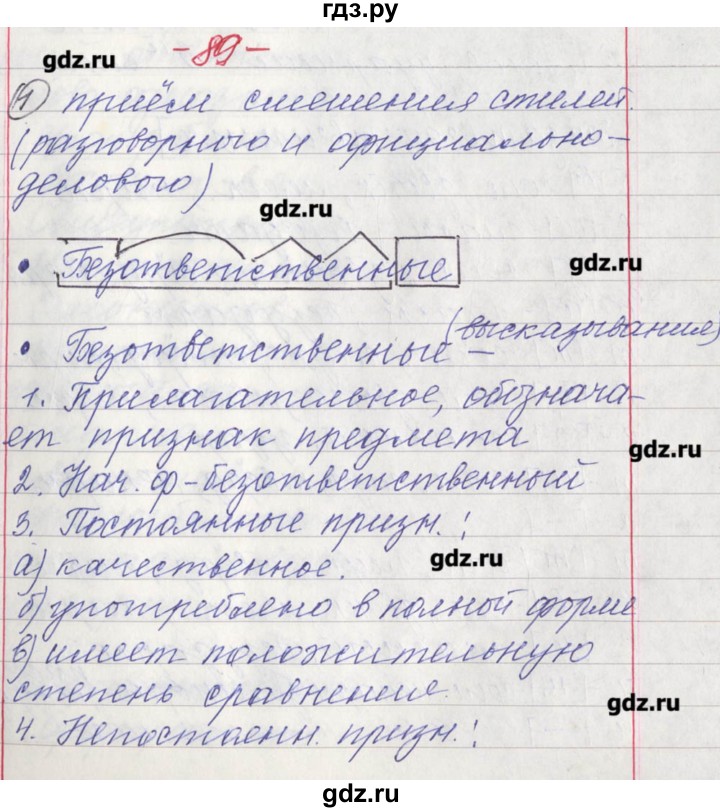 гдз.ру
- 89 -
gdz.ru
gdz.ru
1) приём смешения стилей.
(разговорного и официально-
делового)
gdz.ru
• Безответственные
gdz.ru
(высказывания)
• Безответственные –
1. Прилагательное, обознача-
ет признак предмета
gdz.ru
2. Нач. ф - безответственный
3. Постоянные призн.:
а) качественное.
gdz.ru
б) употреблено в полной форме
в) имеет положительную
степень сравнения.
gdz.ru
4. Непостоянн. призн.:
gdz.ru
gdz.ru